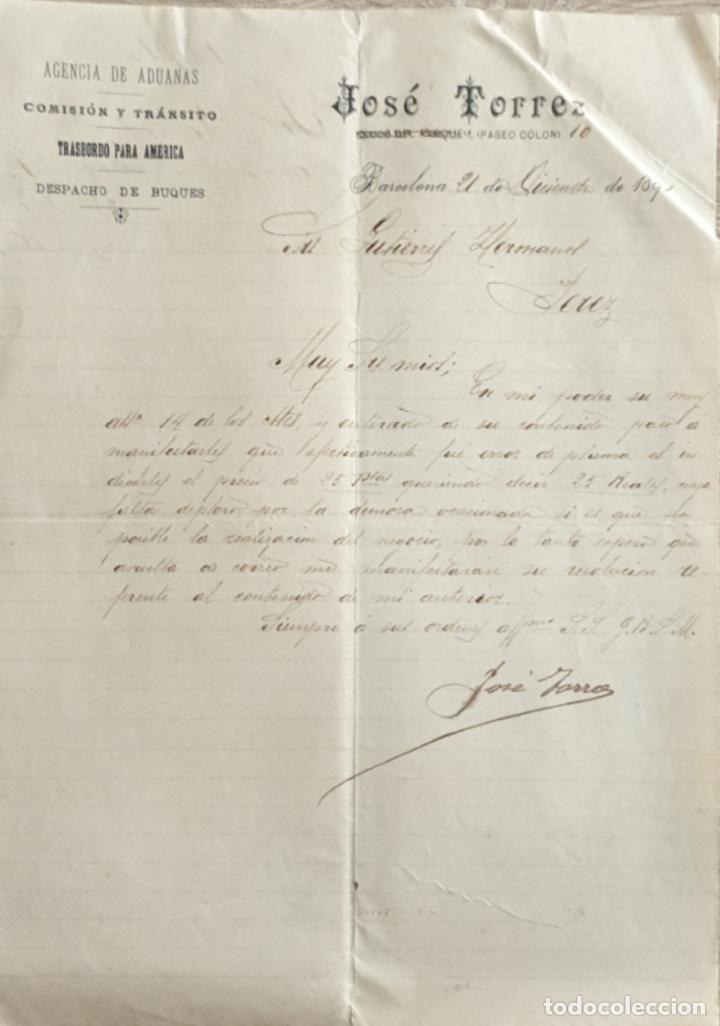 AGENCIA DE ADUANAS
COMISIÓN Y TRÁNSITO
TRASBORDO PARA AMÉRICA
DESPACHO DE BUQUES
José Torres
(PASEO COLON) 10
Barcelona 21 de Diciembre de 189
Gutierrez Hermanos
Jerez
Muy Sres mios;
En mi poder su muy
atta 14 de los ctes, y enterado de su contenido paso á
manifestarles que efectivamente fué error de pluma el in-
dicarles el precio de 25 Ptas queriendo decir 25 Reales, cuya
falta deploro por la demora ocasionada si es que sea
posible la realizacion del negocio, por lo tanto espero que
avuelta de correo me manifestarán su resolucion re-
ferente al contenido de mi anterior.
Siempre á sus ordenes affmo S.S. q.B.S.M.
José Torres
todocoleccion